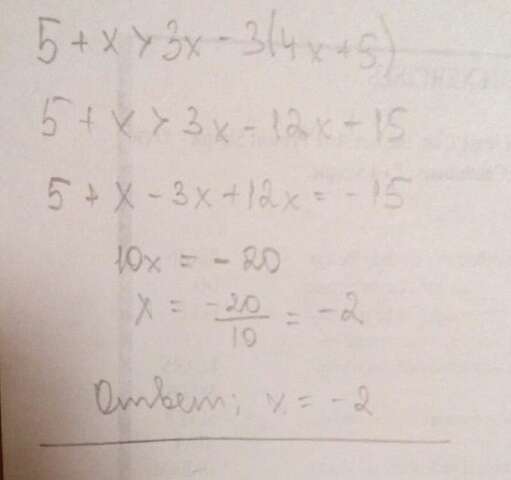 5 + x > 3x - 3(4x + 5)
5 + x > 3x - 12x - 15
5 + x - 3x + 12x = -15
10x = - 20
x = -20/10 = -2
Ответ: x = -2